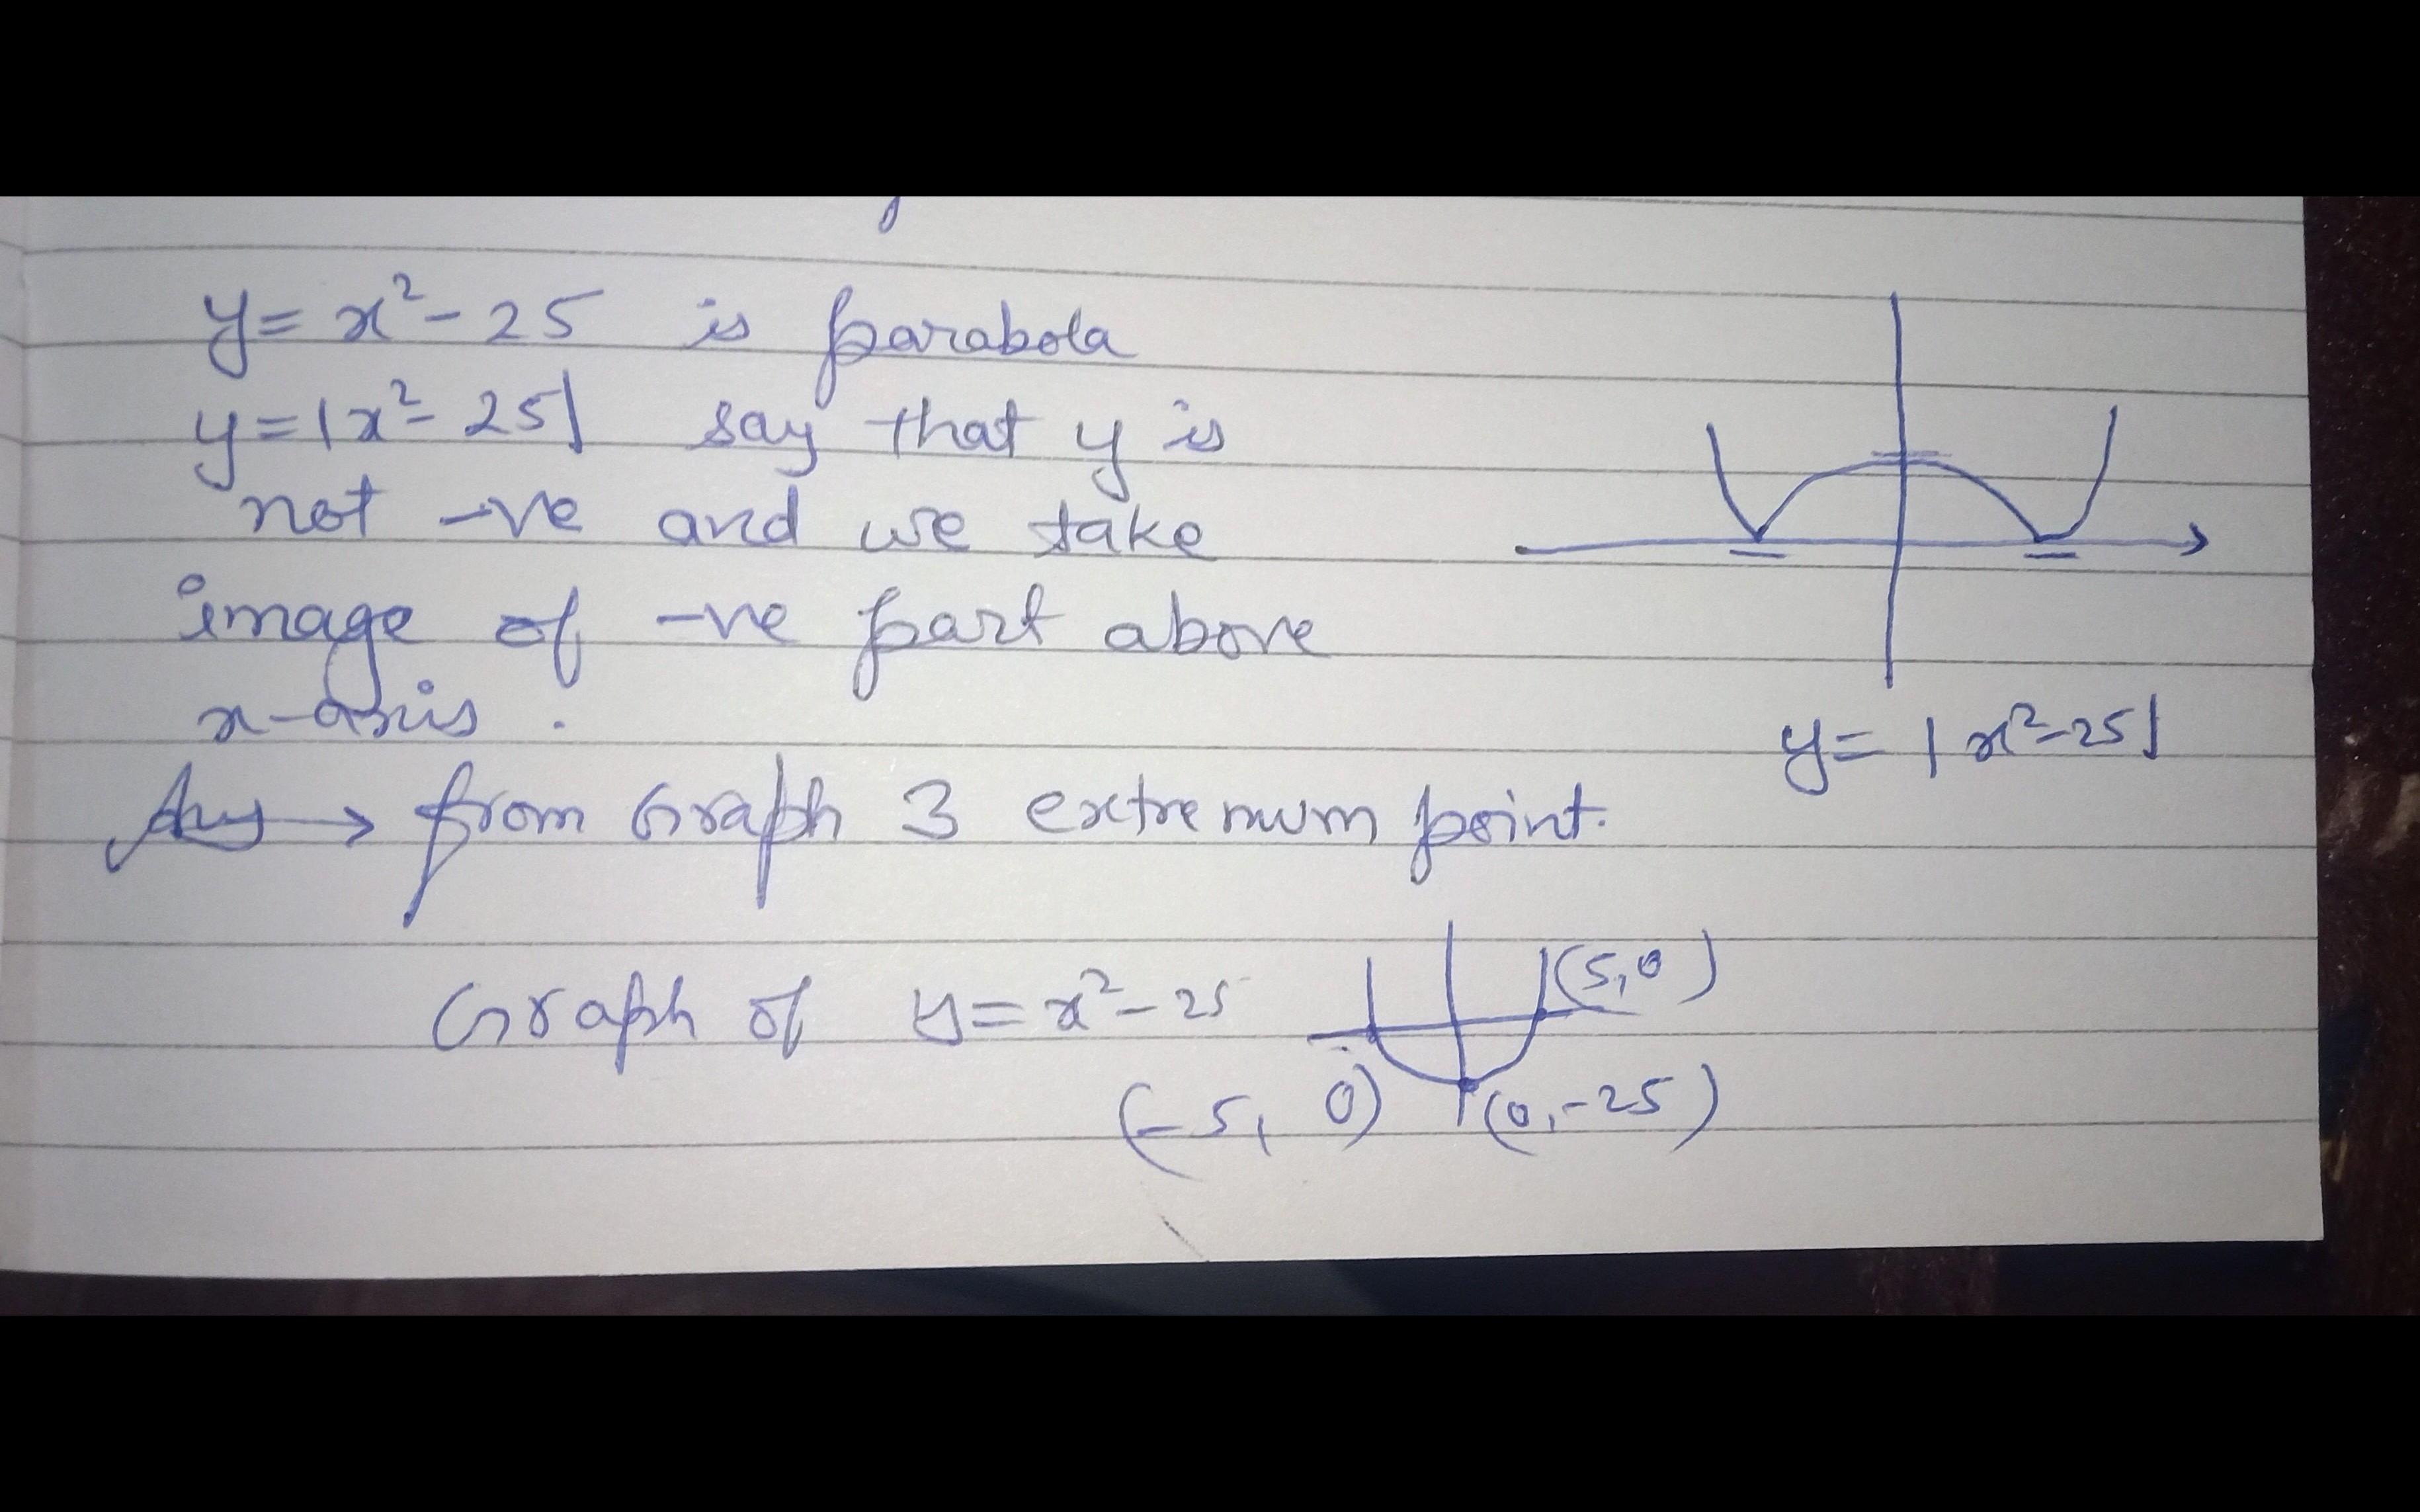 y = x² - 25 is parabola
y = |x² - 25| say that y is
not -ve and we take
image of -ve part above
x-axis.
y = |x² - 25|
Ans → from Graph 3 extremum point.
Graph of y = x² - 25
(5, 0)
(-5, 0)
(0, -25)